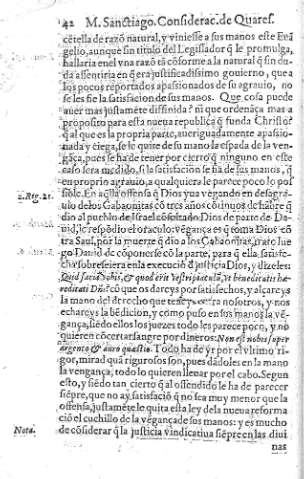 42 M. Sanctiago. Considerac. de Quares.
cẽtella de razõ natural, y viniesse a sus manos este Euã
gelio, aunque sin titulo del Legislador q̃ le promulga,
hallaria en el vna razõ tã cõforme a la natural q̃ sin du-
da assentiria en q̃ era justificadissimo gouierno, que a
los pocos reportados apassionados de su agrauio, no
se les fie la satisfacion de sus manos. Que cosa puede
auer mas justamẽte diffinida? ni que ordenãça mas a
proposito para esta nueua republica q̃ funda Christo?
q̃ al que es la propria parte, aueriguadamente apassio-
nada y ciega, se le quite de su mano la espada de la ven-
gãça, pues se ha de tener por cierto q̃ ninguno en este
caso sera medido, si la satisfacion se ha de sus manos, q̃
en proprio agrauio, a qualquiera le parece poco lo pos
2. Reg. 21. sible. En aq̃lla offensa q̃ Dios yua vegando en desagra-
uio de los Gabaonitas cõ tres años cõtinuos de hãbre q̃
dio al pueblo de Israel cõsultado Dios de parte de Da-
uid, le respõdio el oraculo: vẽgança es q̃ toma Dios cõ
tra Saul, por la muerte q̃ dio a los Gabaonitas, trato lue
go Dauid de cõponerse cõ la parte, para q̃ ella satisfe-
cha sobreseiera en la execuciõ d̃ justicia Dios, y dizeles:
Quid faciã vobis, & quod erit vestri piaculũ, vt benedicatis hæ-
reditati Dñi? cõ que os dareys por satisfechos, y alçareys
la mano del derecho que teneys contra nosotros, y nos
echareys la bẽdicion, y cómo puso en sus manos la vẽ-
gança, siẽdo ellos los juezes todo les parece poco, y no
quieren cõcertar sangre por dineros: Non est nobis super
argento & auro quæstio. Todo ha de yr por el vltimo ri-
gor, mirad quã rigurosos son, pues dãdoles en la mano
la vengança, todo lo quieren lleuar por el cabo. Segun
esto, y siẽdo tan cierto q̃ al ofendido le ha de parecer
siẽpre, que no ay satisfaciõ q̃ no sea muy menor que la
offensa, justamẽte le quita esta ley de la nueua reforma
ciõ el cuchillo de la vẽgança de sus manos: y es mucho
Nota. de cõsiderar q̃ la justicia vindicatiua siẽpre en las diui
nas